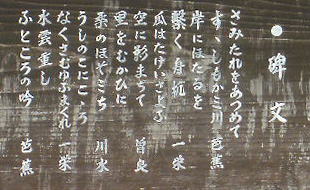 碑文
さみたれをあつめて
すゝしもかミ川 芭蕉
岸にほたるを
繋く舟杭 一栄
瓜はたけいさよふ
空に影まちて 曽良
里をむかひに
桑のほそミち 川水
うしのこにこゝろ
なくさむゆふまくれ 一栄
水雲重し
ふところの吟 芭蕉